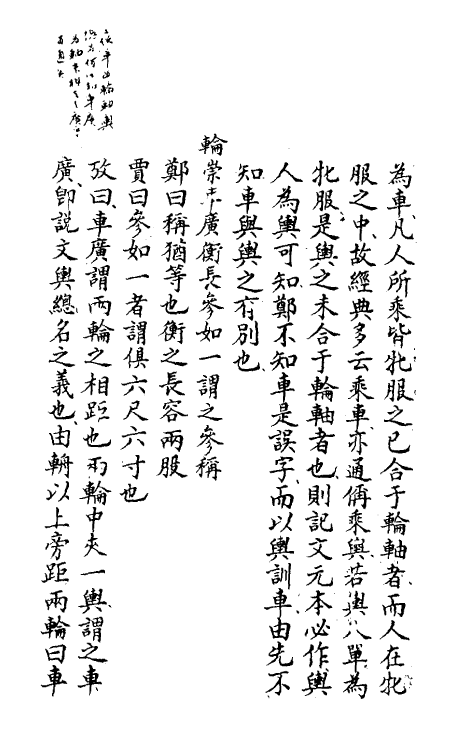 為車凡人所乘皆牝服之已合于輪軸者而人在牝
服之中故經典多云乘車亦通偁乘輿若輿人單為
牝服是輿之未合于輪軸者也則記文元本必作輿
人為輿可知鄭不知車是誤字而以輿訓車由先不
知車與輿之有別也
輪崇車廣衡長參如一謂之參稱
鄭曰稱猶等也衡之長容兩服
賈曰參如一者謂俱六尺六寸也
攷曰車廣謂兩輪之相距也兩輪中夾一輿謂之車
廣卽説文輿總名之義也由輈以上旁距兩輪曰車